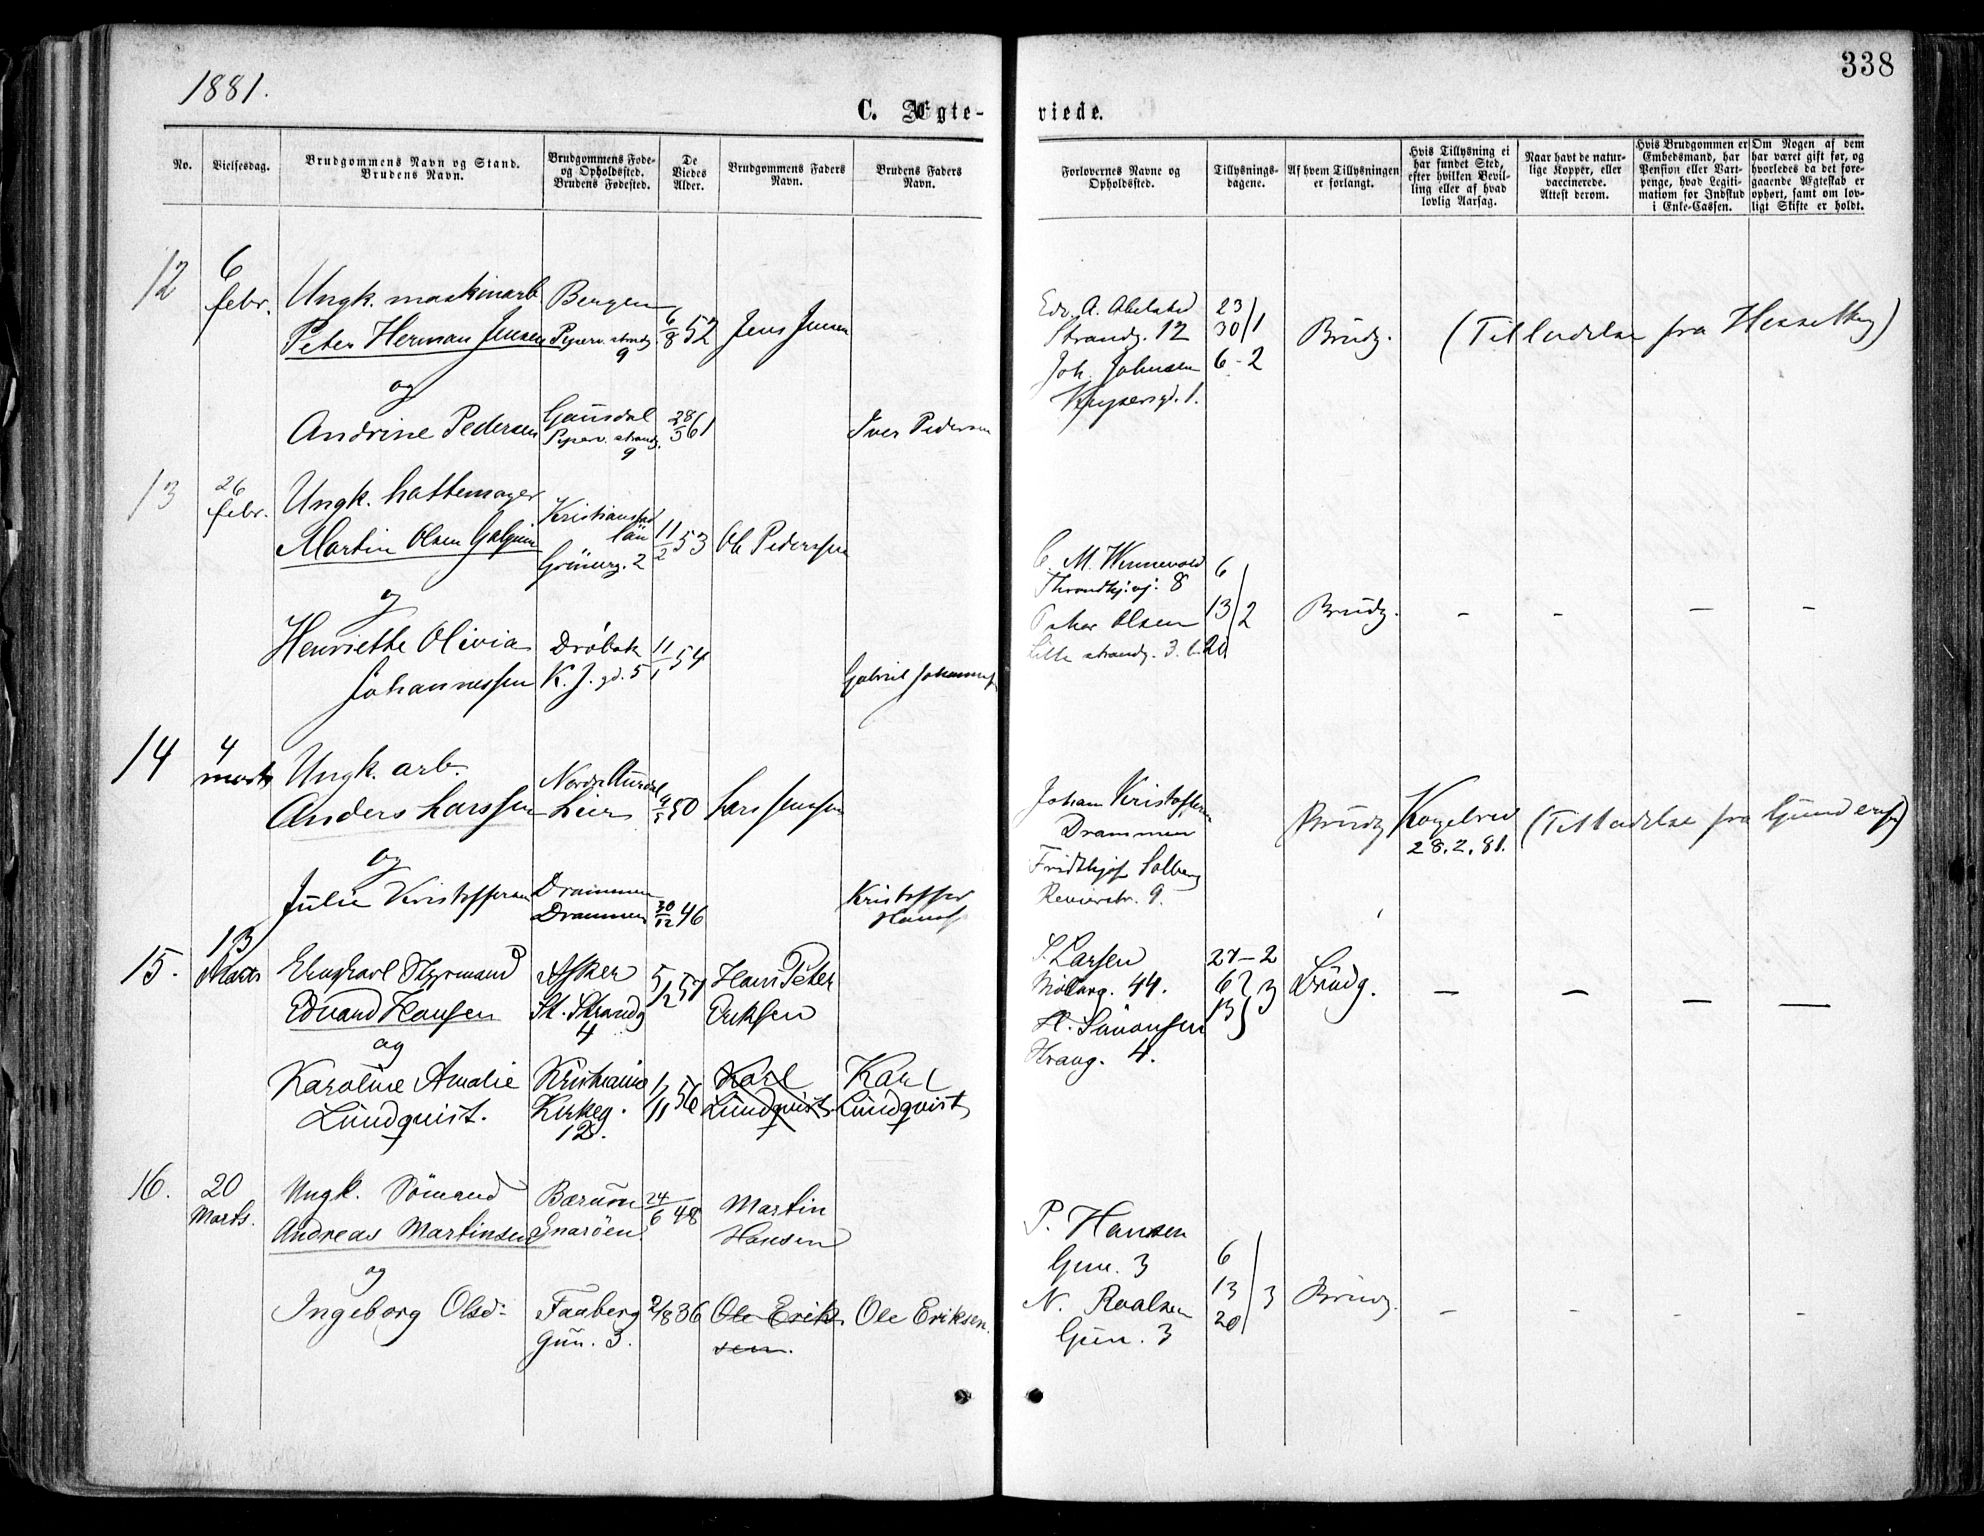 338
1881.
C. Ægte-
viede.
No.
Vielsesdag.
Brudgommens Navn og Stand.
Brudens Navn.
Brudgommens Føde-
og Opholdssted.
Brudens Fødested.
De
Viedes
Alder.
Brudgommens Faders
Navn.
Brudens Faders
Navn.
Forlovernes Navne og
Opholdssted.
Tillysnings-
dagene.
Af hvem Tillysningen
er forlangt.
Hvis Tillysning ei
har fundet Sted,
efter hvilken Bevil-
ling eller af hvad
lovlig Aarsag.
Naar havt de natur-
lige Kopper, eller
vaccinerede.
Attest derom.
Hvis Brudgommen er
Embedsmand, har
Pension eller Vart-
penge, hvad Legiti-
mation for Indskud
i Enke-Cassen.
Om Nogen af dem
har været gift før, og
hvorledes da det fore-
gaaende Ægteskab er
ophørt, samt om lov-
ligt Skifte er holdt.
12
6
febr.
Ungk. maskinarb
Peter Herman Jensen
og
Andrine Pedersen
Bergen
Piperv. strandg
9
Gausdal
Piperv. strandg.
9
6/8 52
28/5 61
Jens Jensen
Iver Pedersen
Edv. A. Abelsted
Strandg. 12
Joh. Johnsen
Keysersgd. 1.
23
30/1
6-2
Brudg.
(Tilladelse fra Hesselberg)
13
26
febr.
Ungk. hattemager
Martin Olsen
og
Henriette Olivia
Johannessen
Kristiansstad
län
Grünerg. 2
Drøbak
K. J. gd. 5
11/2 53
11/1 54
Ole Pederssen
Gabriel Johanness
C. M. Winnevold
Throndhj.vj. 8
Oskar Olsen
Lille strandg. 3.
6
13/2
20
Brudg.
– – – –
14
4
marts
Ungk. arb.
Anders Larssen
og
Julie Kristoffersen
Nordre Aurdal
Lier
Drammen
Drammen
50
30/12 46
Lars Jensen
Kristoffer
Hans
Johan Kristoffersen
Drammen
Fridthjof Solberg
Revierstr. 9.
Brudg
Kongebrev
28.2.81.
(Tilladelse fra Gundersen)
15.
13
Marts
Ungkarl Styrmand
Edvard Hansen
og
Karoline Amalie
Lundquist.
Asker
St. Strandg
4
Kristiania
Kirkeg.
12.
5/12 57
1/11 56
Hans Peter
Eriksen
Karl
Lundquist
Karl
Lundquist
S. Larsen
Møllerg. 44.
H. Simonsen
Strang. 4.
27-2
6
13 } 3
Brudg.
– – – –
16.
20
Marts.
Ungk. Sömand
Andreas Martinsen
og
Ingeborg Olsd:
Bærum
Snarøen
Faaberg
Grün. 3.
24/6 48
2/8 36
Martin
Hansen
Ole Erik
sen.
Ole Eriksen.
P. Hansen
Grün. 3
N. Roalsen
Grün. 3
6
13
20 / 3
Brudg.
– – – –